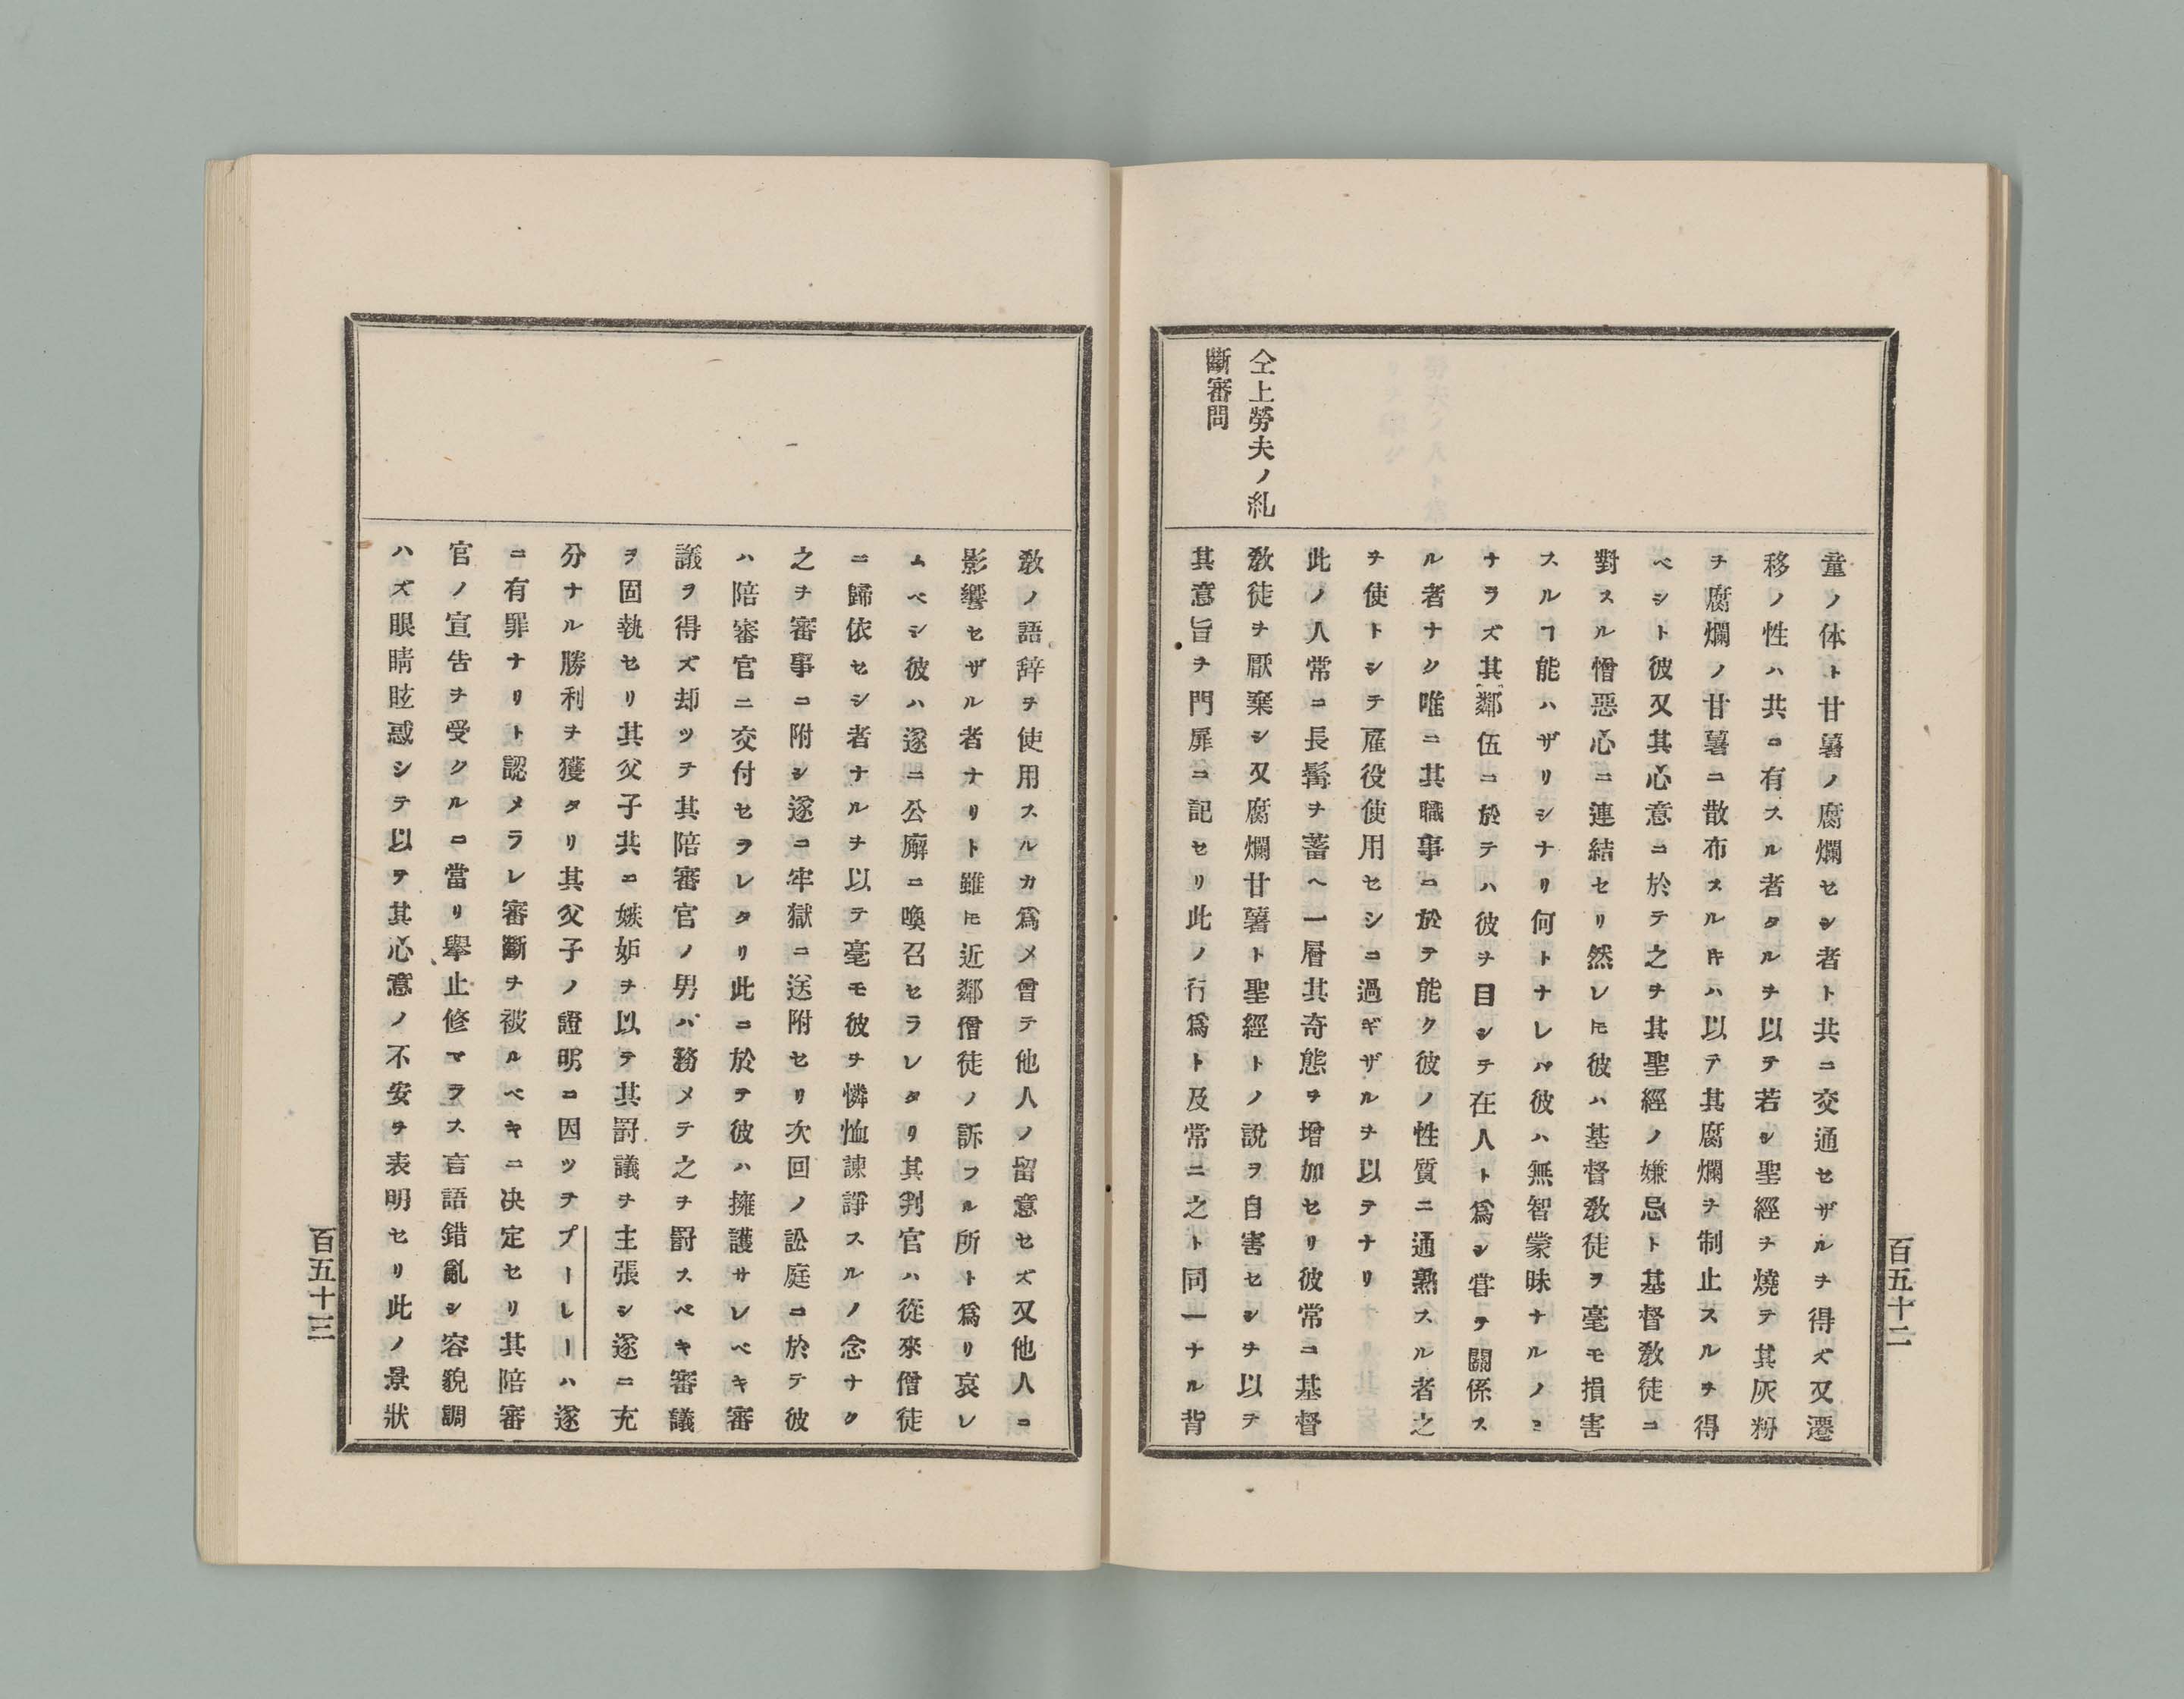 百五十二
仝上勞夫ノ糺
斷審問
童ノ体ト甘薯ノ腐爛セシ者ト共ニ交通セザルヲ得ズ又遷
移ノ性ハ共ニ有スル者タルヲ以テ若シ聖經ヲ燒テ其灰粉
ヲ腐爛ノ甘薯ニ散布スルキハ以テ其腐爛ヲ制止スルヲ得
ベシト彼又其心意ニ於テ之ヲ其聖經ノ嫌忌ト基督敎徒ニ
對スル憎惡心ニ連結セリ然レ𪜈彼ハ基督敎徒ヲ毫モ損害
スルヿ能ハザリシナリ何トナレバ彼ハ無智蒙昧ナルノミ
ナラズ其鄰伍ニ於テハ彼ヲ目シテ在人ト爲シ甞テ關係ス
ル者ナク唯ニ其職事ニ於テ能ク彼ノ性質ニ通熟スル者之
ヲ使トシテ雇役使用セシニ過ギザルヲ以テナリ
此ノ人常ニ長髯ヲ蓄ヘ一層其奇態ヲ增加セリ彼常ニ基督
敎徒ヲ厭棄シ又腐爛甘薯ト聖經トノ說ヲ自害セシヲ以テ
其意旨ヲ門扉ニ記セリ此ノ行爲ト及常ニ之ト同一ナル背
敎ノ語辞ヲ使用スルカ爲メ曾テ他人ノ留意セズ又他人ニ
影響セザル者ナリト雖𪜈近鄰僧徒ノ訴フル所ト爲リ哀レ
ムベシ彼ハ遂ニ公廨ニ喚召セラレタリ其判官ハ從來僧徒
ニ歸依セシ者ナルヲ以テ毫モ彼ヲ憐恤諫諍スルノ念ナク
之ヲ審事ニ附シ遂ニ牢獄ニ送附セリ次回ノ訟庭ニ於テ彼
ハ陪審官ニ交付セヲレタリ此ニ於テ彼ハ擁護サレベキ審
議ヲ得ズ却ツテ其陪審官ノ男バ務メテ之ヲ罸スベキ審議
ヲ固執セリ其父子共ニ嫉妬ヲ以テ其罸議ヲ主張シ遂ニ充
分ナル勝利ヲ獲タリ其父子ノ證明ニ因ツテプーレーハ遂
ニ有罪ナリト認メラレ審斷ヲ被ルベキニ决定セリ其陪審
官ノ宣告ヲ受クルニ當リ擧止修マラス言語錯亂シ容貌調
ハズ眼睛眩惑シテ以テ其心意ノ不安ヲ表明セリ此ノ景狀
百五十三